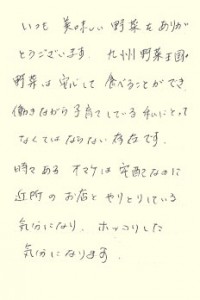 いつも 美味しい 野菜を ありが
とうございます. 九州野菜王国の
野菜は 安心して 食べることができ
働きながら子育てしている 私にとって
なくてはならない存在です.
時々ある オマケは 宅配なのに
近所の お店と やりとりしている
気分になり. ホッコリした
気分になります.